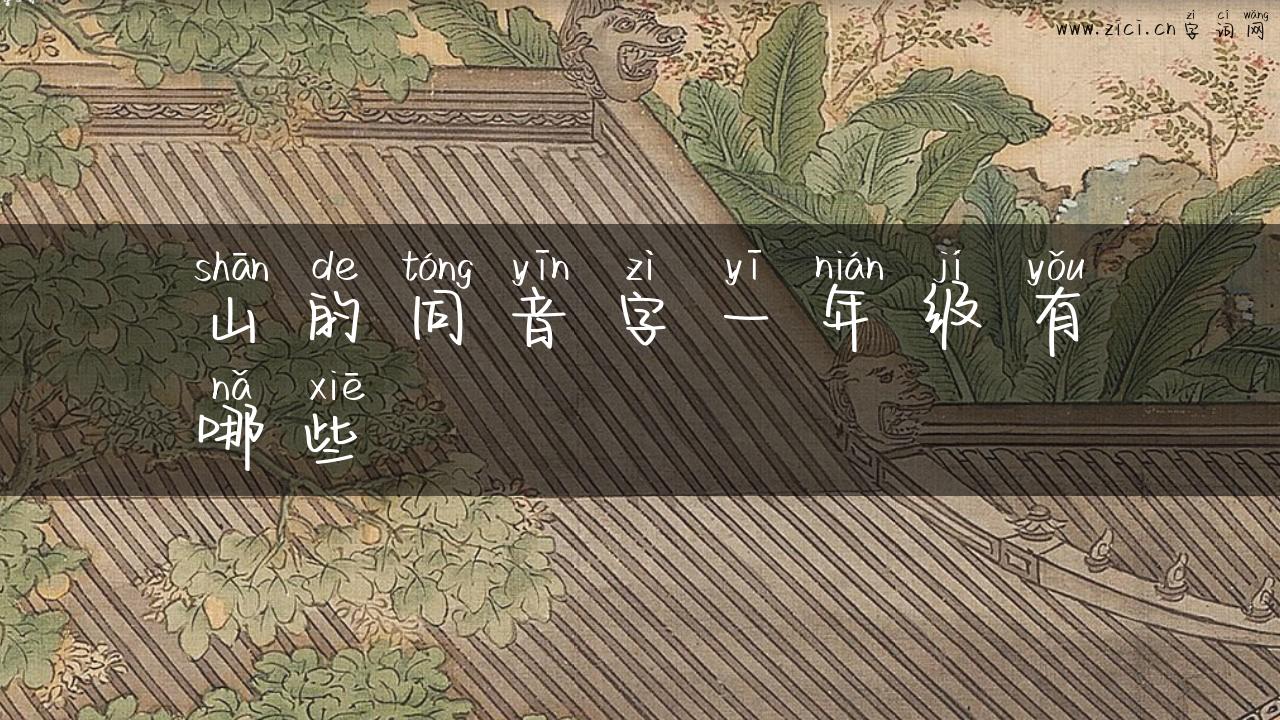 zì cí wǎng
www.zici.cn 字词网
shān de tóng yīn zì yī nián jí yǒu
山的同音字一年级有
nǎ xiē
哪些